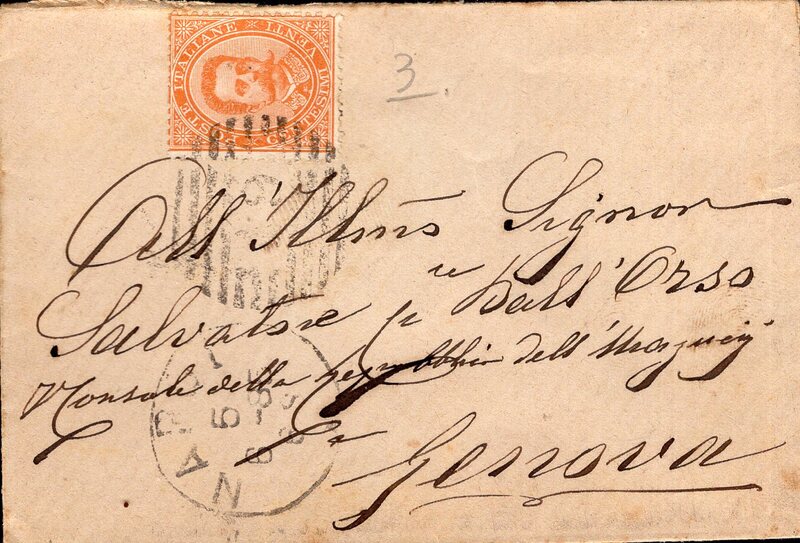 POSTE ITALIANE VENTI CENTESIMI
3.
All'Illmo Signor
Salvatore Dall'Orso
Console della Repubblica dell'Uraguaij
Genova
NAR